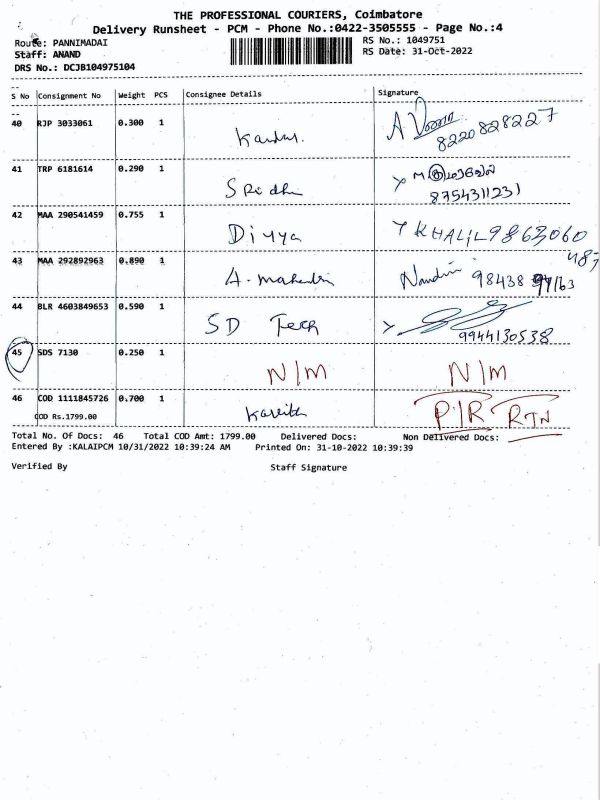 THE PROFESSIONAL COURIERS, Coimbatore
Delivery Runsheet - PCM - Phone No.:0422-3505555 - Page No.:4
Route: PANNIMADAI
RS No.: 1049751
Staff: ANAND
RS Date: 31-Oct-2022
DRS No.: DCJB104975104
S No Consignment No Weight PCS Consignee Details Signature
40 RJP 3033061 0.300 1 8220828227
41 TRP 6181614 0.290 1 Sridhar 8754311231
42 MAA 290541459 0.755 1 Divya KHALIL 9863060
487
43 MAA 292892963 0.890 1 A. Nandini 98438
44 BLR 4603849653 0.590 1 SD Tech 9944130538
45 SDS 7130 0.250 1 N/M N/M
46 COD 1111845726 0.700 1 P/R RTN
COD Rs.1799.00
Total No. Of Docs: 46 Total COD Amt: 1799.00 Delivered Docs: Non Delivered Docs:
Entered By :KALAIPCM 10/31/2022 10:39:24 AM Printed On: 31-10-2022 10:39:39
Verified By Staff Signature